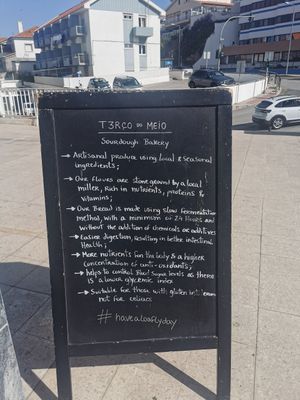 T3RÇO DO MEIO
Sourdough Bakery
→ Artisanal produce using local & seasonal
ingredients;
→ Our flours are stoneground by a local
miller, rich in nutrients, proteins &
vitamins;
→ Our Bread is made using slow fermentation
method, with a minimum of 24 Hours and
without the addition of chemicals or additives
→ Easier digestion, resulting in better intestinal
Health;
→ More nutrients for the body & a higher
concentration of anti-oxidants;
→ helps to control Blood sugar levels as there
is a lower glycemic index
→ Suitable for those with gluten
not for celiacs
#havealoaflyday